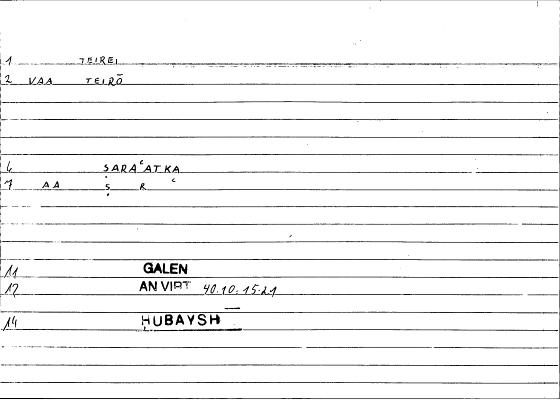 1 TEIREI
2 VAA TEIRŌ
6 ṢARAʿATKA
7 AA Ṣ R ʿ
11 GALEN
12 AN VIRT 40.10.15-21
14 HUBAYSH